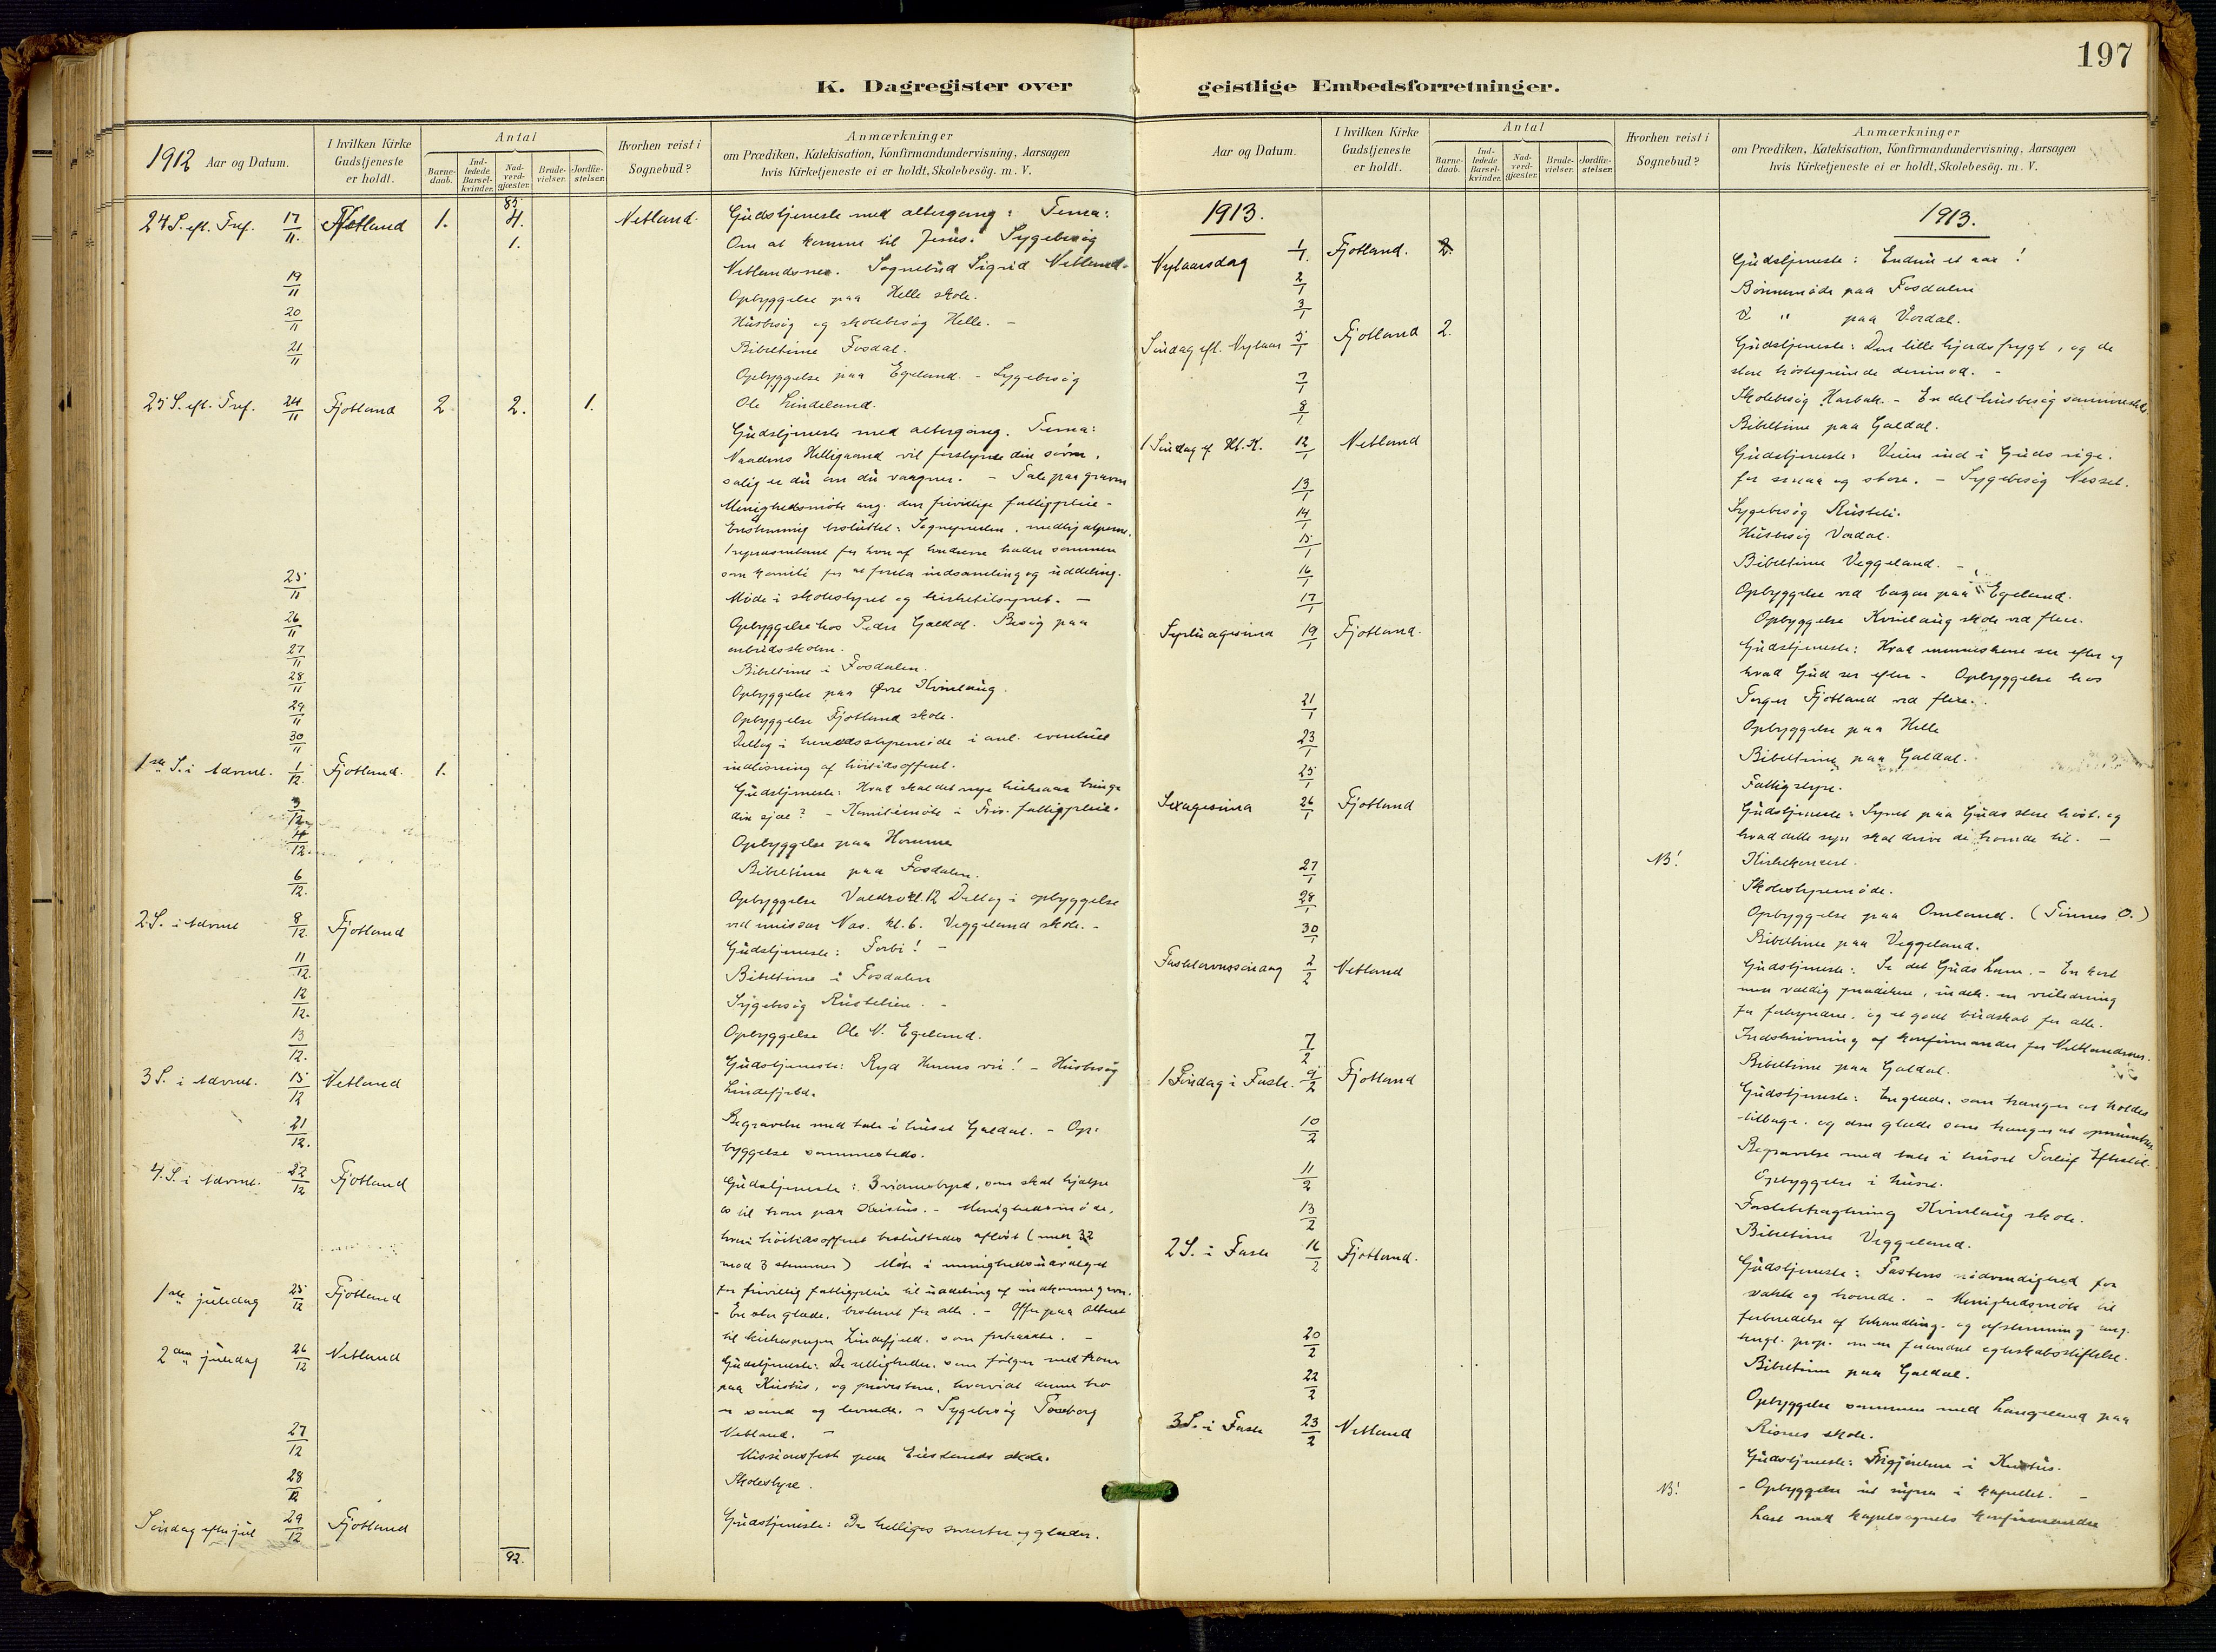 197
K. Dagregister over geistlige Embedsforretninger.
1912 Aar og Datum.
I hvilken Kirke Gudstjeneste er holdt.
Antal
Barnedaab.
Indledede Barselkvinder.
Nadverdgjæster.
Brudevielser.
Jordfæstelser.
Hvorhen reist i Sognebud?
Anmærkninger
om Prædiken, Katekisation, Konfirmandundervisning, Aarsagen
hvis Kirketjeneste ei er holdt, Skolebesög. m. V.
85
24 S. eft. Tref. 17/11. Netland 1. 4. Netland. Gudstjeneste med altergang: Tema:
1. Om at komme til Jesus. Sygebesøg
Netlandsnes. Sognebud Sigrid Netland.
19/11 Opbyggelse paa Helle skole.
20/11 Husbesøg og skolebesøg Helle. -
21/11 Bibeltime Fosdal.
Opbyggelse paa Egeland. - Sygebesøg
Ole Lindeland.
25 S. eft. Tref. 24/11 Fjotland 2 2. 1.
Gudstjeneste med altergang. Tema:
Naadens Helligaand vil forstyrre din søvn,
salig er du om du vaagner. - Tale paa graven
Menighedsmøte ang. den frivillige fattigpleie -
Enstemmig besluttet: Sognepresten, medhjælperne,
som komité for at foreta indsamling og uddeling.
25/11 Møde i skolestyret og kirketilsynet. -
26/11 Opbyggelse hos Peder Galdal. Besøg paa
arbeidsskolen.
27/11 Bibeltime i Fosdalen.
28/11 Opbyggelse paa Øvre Kvinlaug.
29/11 Opbyggelse Fjotland skole.
30/11 Deltog i herredsstyremøde i anl. eventuel
indløsning af høitidsofferet.
1ste S. i Advent. 1/12. Fjotland. 1. Gudstjeneste: Hvad skal det nye kirkeaar bringe
din sjæl? - Komitémøte i Friv. fattigpleie.
3/12. Opbyggelse paa Homme
4/12. Bibeltime paa Fosdalen.
6/12. Opbyggelse kl. 12 Deltog i opbyggelse
ved kl. 6. Veggeland skole. -
2 S. i Advent 8/12. Fjotland Gudstjeneste: Forbi! -
11/12. Bibeltime i Fosdalen
12/12. Sygebesøg Rustelien. -
13/12. Opbyggelse Ole N. Egeland.
3 S. i Advent. 15/12 Netland Gudstjeneste: Ryd Herrens vei! - Husbesøg
Lindefjeld.
21/12. Begravelse med tale i huset Galdal. - Op-
byggelse sammesteds.
4. S. i Advent. 22/12 Fjotland Gudstjeneste: 3 vidnesbyrd, som skal hjælpe
os til troen paa Kristus. - Menighedsmøde,
hvori høitidsofferet besluttedes afløst (med 32
mod 3 stemmer) Møte i menighedsudvalget
for frivillig fattigpleie til uddeling af indkomne gaver.
1ste juledag 25/12 Fjotland - En stor glæde, bestemt for alle. - Offer paa alteret
til kirkesanger Lindefjeld, som fratraadte. -
2den juledag 26/12 Netland Gudstjeneste: De som følger med troen
paa Kristus, og prøvestene, hvorvidt denne tro
er sand og levende. - Sygebesøg
Netland. -
27/12 Missionsfest paa skole.
28/12 Skolestyre.
Søndag efter jul 29/12 Fjotland Gudstjeneste: De helliges smerter og glæder.
92.
Aar og Datum.
I hvilken Kirke Gudstjeneste er holdt.
Antal
Barnedaab.
Indledede Barselkvinder.
Nadverdgjæster.
Brudevielser.
Jordfæstelser.
Hvorhen reist i Sognebud?
Anmærkninger
om Prædiken, Katekisation, Konfirmandundervisning, Aarsagen
hvis Kirketjeneste ei er holdt, Skolebesög. m. V.
1913. 1913.
Nytaarsdag 1/1. Fjotland. 2. Gudstjeneste: Endnu et aar!
2/1 Børnemøde paa Fosdalen
3/1 " paa Vordal.
Søndag eft. Nytaar 5/1 Fjotland 2. Gudstjeneste: Den lille hjords frygt, og de
store trøstegrunde derimod. -
7/1 Skolebesøg - En del husbesøg sammesteds.
8/1 Bibeltime paa Galdal.
1 Søndag ef. H.3.K. 12/1 Netland Gudstjeneste: Veien ind i Guds rige.
for smaa og store. - Sygebesøg Nesset.
13/1 Sygebesøg Rusteli.
14/1 Husbesøg Vordal.
15/1 Bibeltime Veggeland. -
16/1 Opbyggelse ved bazar paa Egeland.
17/1 Opbyggelse Kvinlaug skole ved flere.
Septuagesima 19/1 Fjotland. Gudstjeneste: Hvad menneskene ser efter og
hvad Gud ser efter. - Opbyggelse hos
Torger Fjotland ved flere.
21/1 Opbyggelse paa Helle
23/1 Bibeltime paa Galdal.
25/1 Fattigstyre.
Sexagesima 26/1 Fjotland Gudstjeneste: Synet paa Guds store høst, og
hvad dette syn skal drive de troende til. -
NB! Kirkekoncert.
27/1 Skolestyremøde.
28/1 Opbyggelse paa Omland. (Tinnes O.)
30/1 Bibeltime paa Veggeland.
Fastelavnssøndag 2/2 Netland Gudstjeneste: Se det Guds Lam. - En kort
men vældig prædiken, en veiledning
for forkyndere, og et godt budskab for alle.
Indskrivning af konfirmander for Netlandsnes.
7/2 Bibeltime paa Galdal.
1 Søndag i Faste. 9/2 Fjotland Gudstjeneste: En glæde, som trænger at holdes
tilbage, og den glæde som trænger at opmuntres.
10/2 Begravelse med tale i huset
Opbyggelse i huset.
11/2 Fastebetragtning Kvinlaug skole.
13/2 Bibeltime Veggeland.
2 S. i Faste 16/2 Fjotland. Gudstjeneste: Fastens nødvendighed for
vakte og troende. - Menighedsmøte til
forberedelse af behandling og afstemning ang.
kngl. prop. om en forandret egteskabsstiftelse.
20/2 Bibeltime paa Galdal.
22/2 Opbyggelse sammen med Langeland paa
Risnes skole.
3 S. i Faste 23/2 Netland Gudstjeneste: Frigjørelsen i Kristus.
NB! - Opbyggelse i kapellet. -
Læst med kapelsognets konfirmander